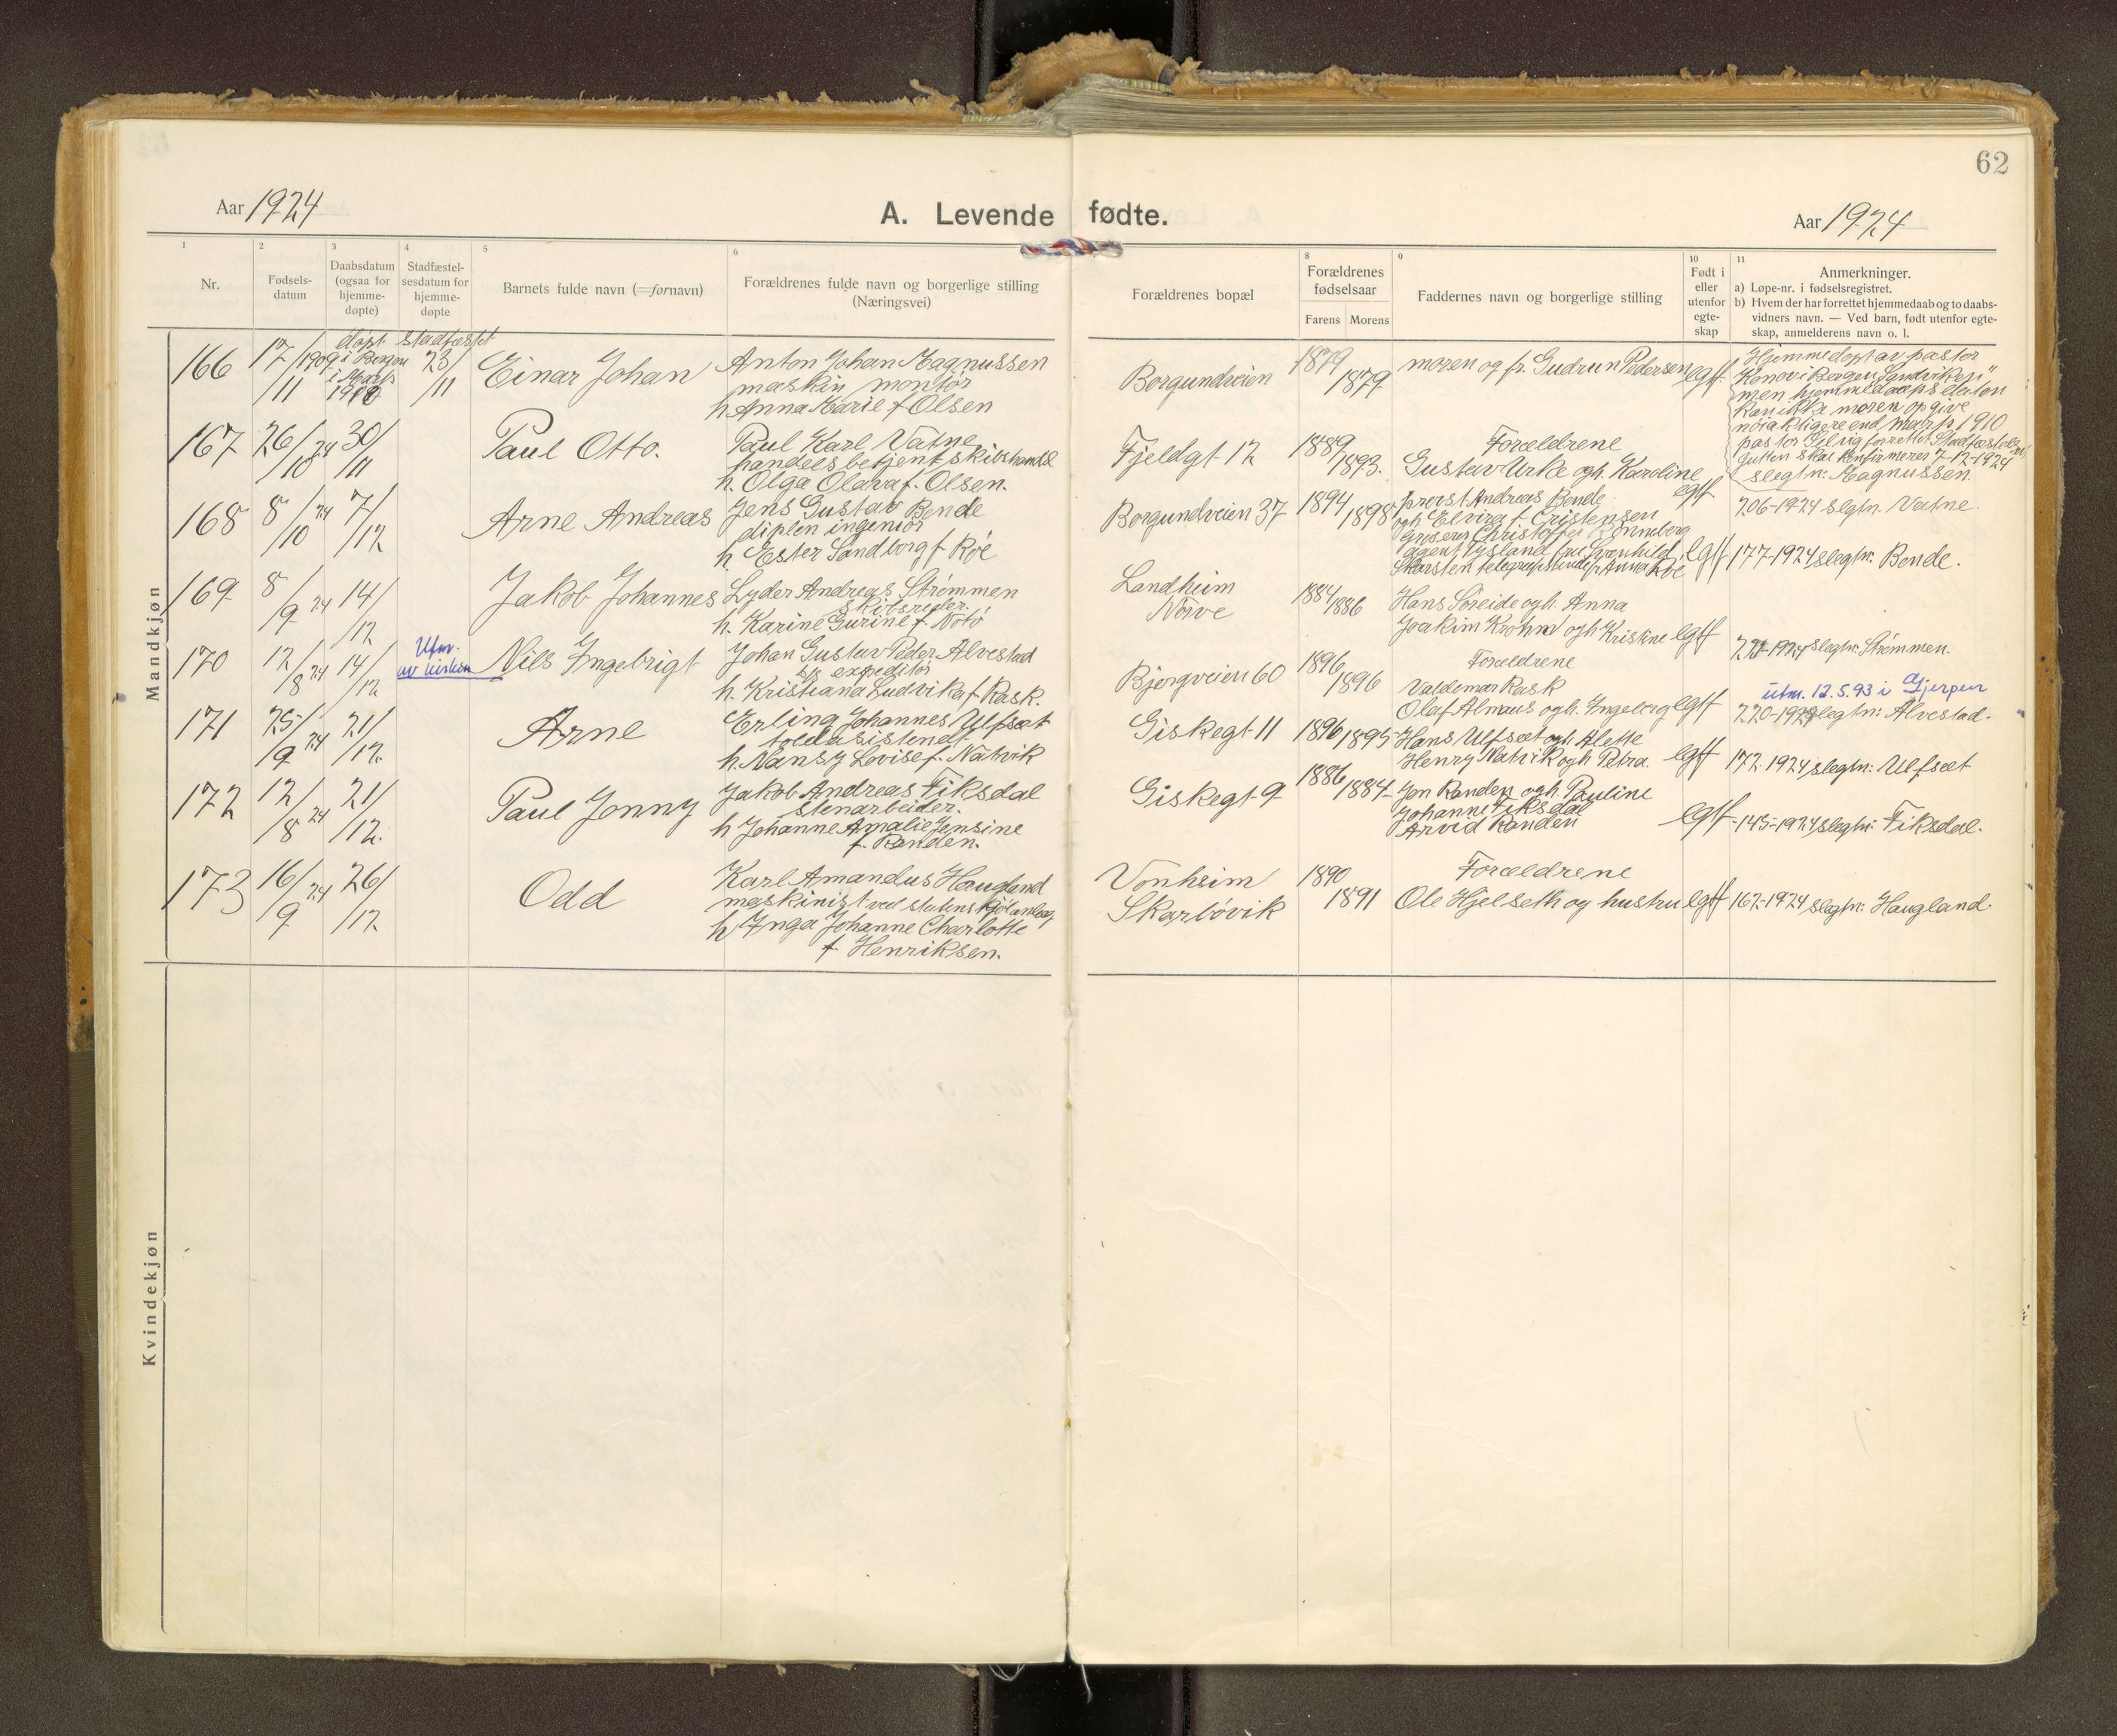 62
Aar 1924
A. Levende fødte.
Aar 1924
1
2
3
4
5
6
8
9
10
11
Nr.
Fødsels-
datum
Daabsdatum
(ogsaa for
hjemme-
døpte)
Stadfæstel-
sesdatum for
hjemme-
døpte
Barnets fulde navn (=fornavn)
Forældrenes fulde navn og borgerlige stilling
(Næringsvei)
Forældrenes bopæl
Forældrenes
fødselsaar
Farens Morens
Faddernes navn og borgerlige stilling
Født i
eller
utenfor
egte-
skap
Anmerkninger.
a) Løpe-nr. i fødselsregistret.
b) Hvem der har forrettet hjemmedaab og to daabs-
vidners navn. — Ved barn, født utenfor egte-
skap, anmelderens navn o. l.
Mandkjøn
166
17/11 1909
døpt
i Bergen
i Marts
stadfæstet
23/11
Einar Johan
Anton Johan Magnussen
maskin montør
h Anna Marie f Olsen
Borgundveien
1879
1879
moren og fr. Gudrun Pedersen
egtf
Hjemmedøpt av pastor
Konow i Bergen "Sandviken"
men hjemmedaaps datoen
kan ikke moren opgive
nøiaktigere end marts 1910
pastor forrettet
gutten skal konfirmeres 7-12-1924
slegtn: Magnussen.
167
26/10 24
30/11
Paul Otto.
Paul Karl Vatne
handels betjent skibshandel
h. Olga Olava f. Olsen.
Fjeldgt 12
1889
1893.
Forældrene
Gustav Urke og h. Karoline
egtf
206-1924 slegtn. Vatne.
168
8/10 24
7/12
Arne Andreas
Jens Gustav Bende
diplon ingeniør
h Ester Sandborg f Røe
Borgundveien 37
1894
1898
provst Andreas Bende
og h Elvira f Cristensen
Christoffer Rønneberg
agent Tysland fru Svanhild
Skarsten Anna Røe
egtf
177-1924 slegtn: Bende.
169
8/9 24
14/12
Jakob Johannes
Lyder Andreas Strømmen
skibsreder.
h. Karine Gurine f Notø
Landheim
Nørve
1884
1886
Hans Søreide og h. Anna
Joakim Krohn og h Kristine
egtf
1924 slegtn: Strømmen.
170
12/8 24
14/12
Utm.
av kirken
Nils Ingebrigt
Johan Gustav Peder Alvestad
expeditør
h. Kristiana Ludvika f. Rask.
Bjergveien 60
1896
1896
Forældrene
Valdemar Rask
Olaf Almaus og h. Ingeborg
egtf
utm. 12.5.93 i Gjerpen
220-1924 slegtn: Alvestad.
171
25/9 24
21/12.
Arne
Erling Johannes Ulfsæt
toldasistent
h. Nansy Lovise f. Natvik
Giskegt 11
1896
1895
Hans Ulfsæt og h Alette
Henry Natvik og h Petra.
egtf
172 1924 slegtn: Ulfsæt
172
12/8 24
21/12.
Paul Jonny
Jakob Andreas Fiksdal
stenarbeider.
h Johanne Amalie Jensine
f. Randen.
Giskegt 9
1886
1884
Jon Randen og h Pauline
Johanne Fiksdal
Arvid Randen
egtf
145-1924 slegtn: Fiksdal.
173
16/9 24
26/12.
Odd
Karl Amandus Haugland
maskinist ved statens kjøleanlæg
h Inga Johanne Charlotte
f Henriksen.
Vonheim
Skarbøvik
1890
1891
Forældrene
Ole Hjelseth og hustru
egtf
162-1924 slegtn: Haugland.
Kvindekjøn